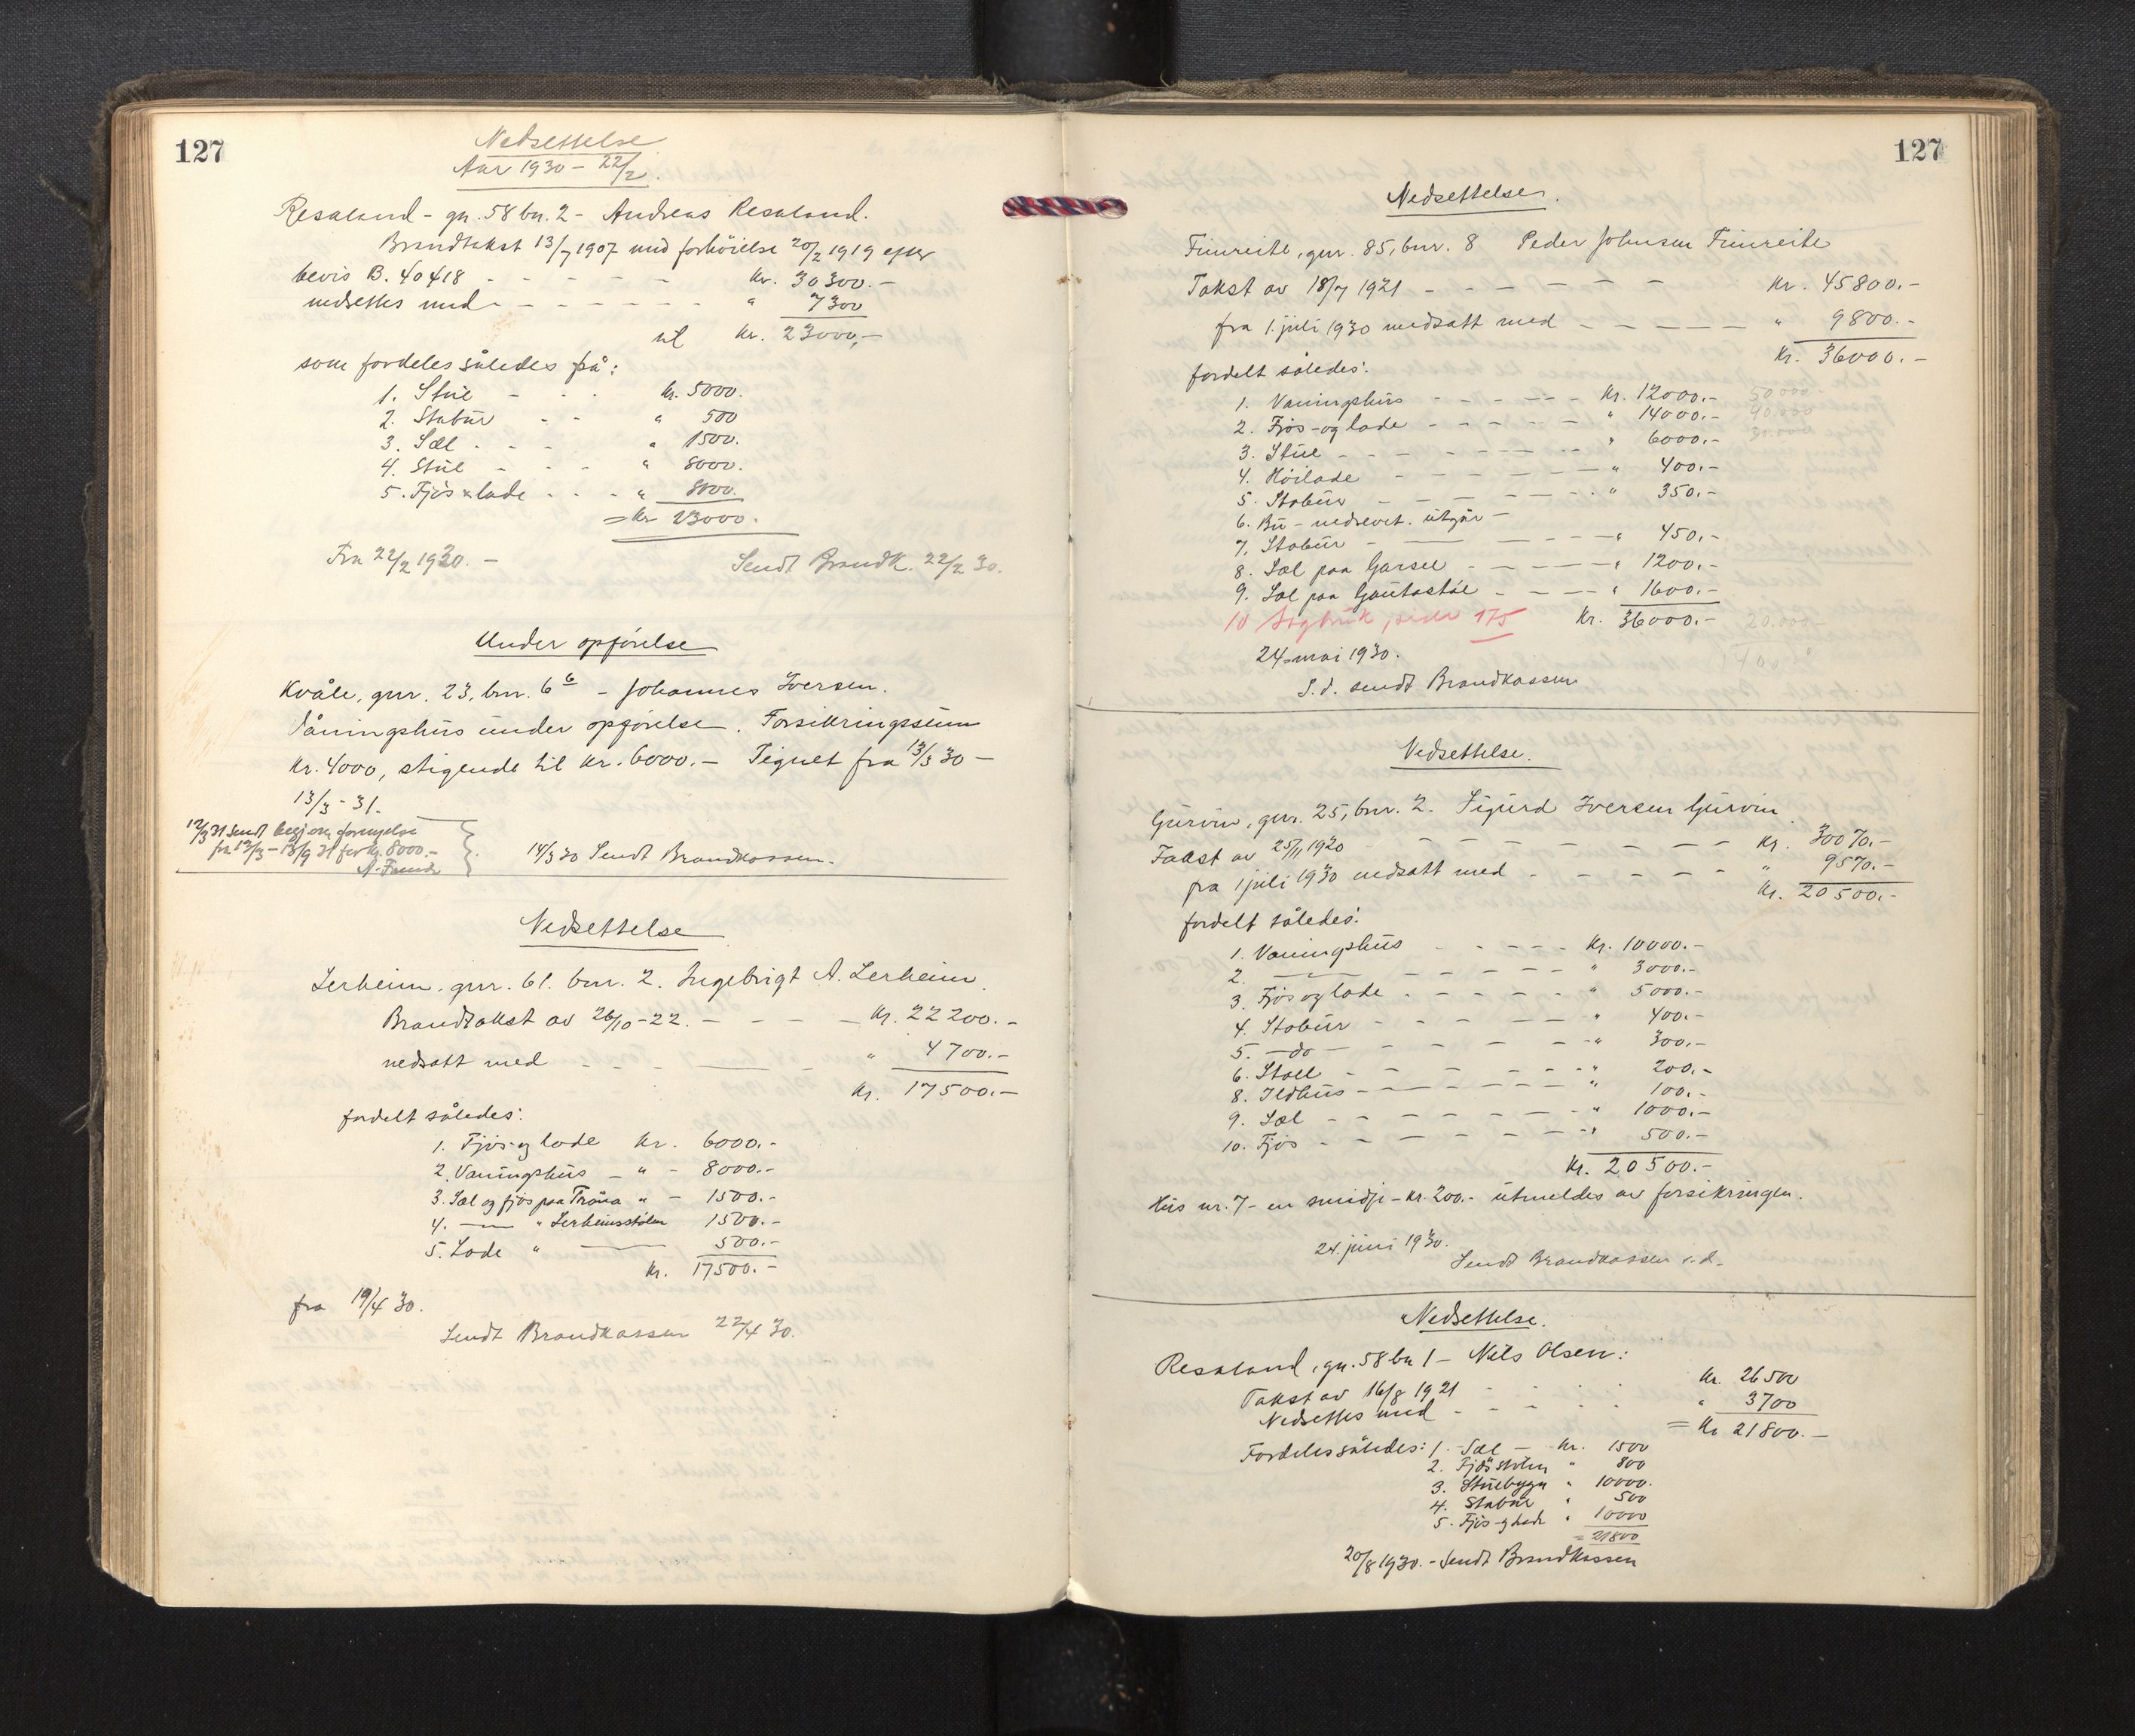 127
Nedsettelse
Aar 1930 - 22/2.
Resaland - gn. 58 bn. 2 - Andreas Resaland.
Brandtakst 13/7 1907 med forhöielse 20/2 1919 efter
bevis B. 40418 - - - - - Kr. 30300.-
nedsettes med - - - - - - - " 7300
til Kr. 23000,-
som fordeles således på:
1. Stue - - - Kr. 5000.
2. Stabur - - " 500
3. Sæl - - - " 1500.
4. Stue - - - " 8000.
5. Fjös & lade - - - " 8000.
= Kr 23000.
Fra 22/2 1930. -
Sendt Brandk. 22/2 30.
Under opförelse
Kvåle, gnr. 23, bnr. 6 6 - Johannes Iversen.
Våningshus under opförelse. Forsikringssum
Kr. 4000, stigende til kr. 6000.- Tegnet fra 13/3 30 -
13/3 - 31.
12/3 31 sendt begj om fornyelse
fra 13/3 - 13/9 31 for kr. 8000.-
14/3 30 Sendt Brandkassen.
Nedsettelse
Lerheim, gnr. 61. bnr. 2. Ingebrigt A. Lerheim.
Brandtakst av 26/10 - 22. - - - - Kr. 22200.-
nedsatt med - - - " 4700.-
Kr. 17500.-
fordelt således:
1. Fjös og lade Kr. 6000.-
2. Vaningshus - " - 8000.-
3. Sæl og fjös paa Tröna " - 1500.-
4. — " Lerheimsstölen 1500.-
5. Lade " — 500.-
Kr. 17500.-
fra 19/4 30.
Sendt Brandkassen 22/4 30.
127
Nedsettelse.
Fimreite, gnr. 85, bnr. 8 Peder Johnsen Fimreite
Takst av 18/7 1921 - - - - - - Kr. 45800.-
fra 1. juli 1930 nedsatt med - - - - - " 9800.-
Kr. 36000.-
fordelt således:
1. Vaningshus - - - - - Kr. 12000.- 50.000
2. Fjös- og lade - - - - - " 14000.- 40.000
3. Stue - - - - - - " 6000.- 30.000
4. Höilade - - - - - " 400.-
5. Stabur - - - - - " 350.-
6. Bu - nedrevet. utgår -
7. Stabur - — - - - " 450.-
8. Sæl paa Garsee - - - - " 1200.-
9. Sæl paa Gautastöl - - - " 1600.-
10 Sagbruk, side 175 Kr. 36000.- 20.000
24 mai 1930.
S.d. sendt Brandkassen
Nedsettelse.
Gurvin, gnr. 25, bnr. 2. Sigurd Iversen Gurvin.
Takst av 25/11 1920 - - - - - - - Kr. 30070.-
fra 1 juli 1930 nedsatt med - - - - - " 9570.-
Kr. 20500.-
fordelt således:
1. Vaningshus - - - - Kr. 10000.-
2. — - - - - " 3000.-
3. Fjös og lade - - - - - " 5000.-
4. Stabur - - - - - " 400.-
5. — do — - - - - " 300.-
6. Stall - - - - - - " 200.-
8. Ildhus - - - - - " 100.-
9. Sæl - - - - - - " 1000.-
10. Fjös - - - - - - " 500.-
Kr. 20500.-
Hus nr. 7 - en smidje - kr. 200.- utmeldes av forsikringen.
24. juni 1930.
Sendt Brandkassen s.d.
Nedsettelse.
Resaland, gn. 58 bn 1 - Nils Olsen:
Takst av 16/8 1921 - - - - Kr. 26500
Nedsettes med - - - - - " 3700
= Kr 21800.-
Fordeles således: 1. Sæl - Kr. 1500
2. Fjös stölen " 800
3. Stuebygn " 10000.
4. Stabur " 500
5. Fjös- og lade " 10000
= 21800
20/8 1930. - Sendt Brandkassen